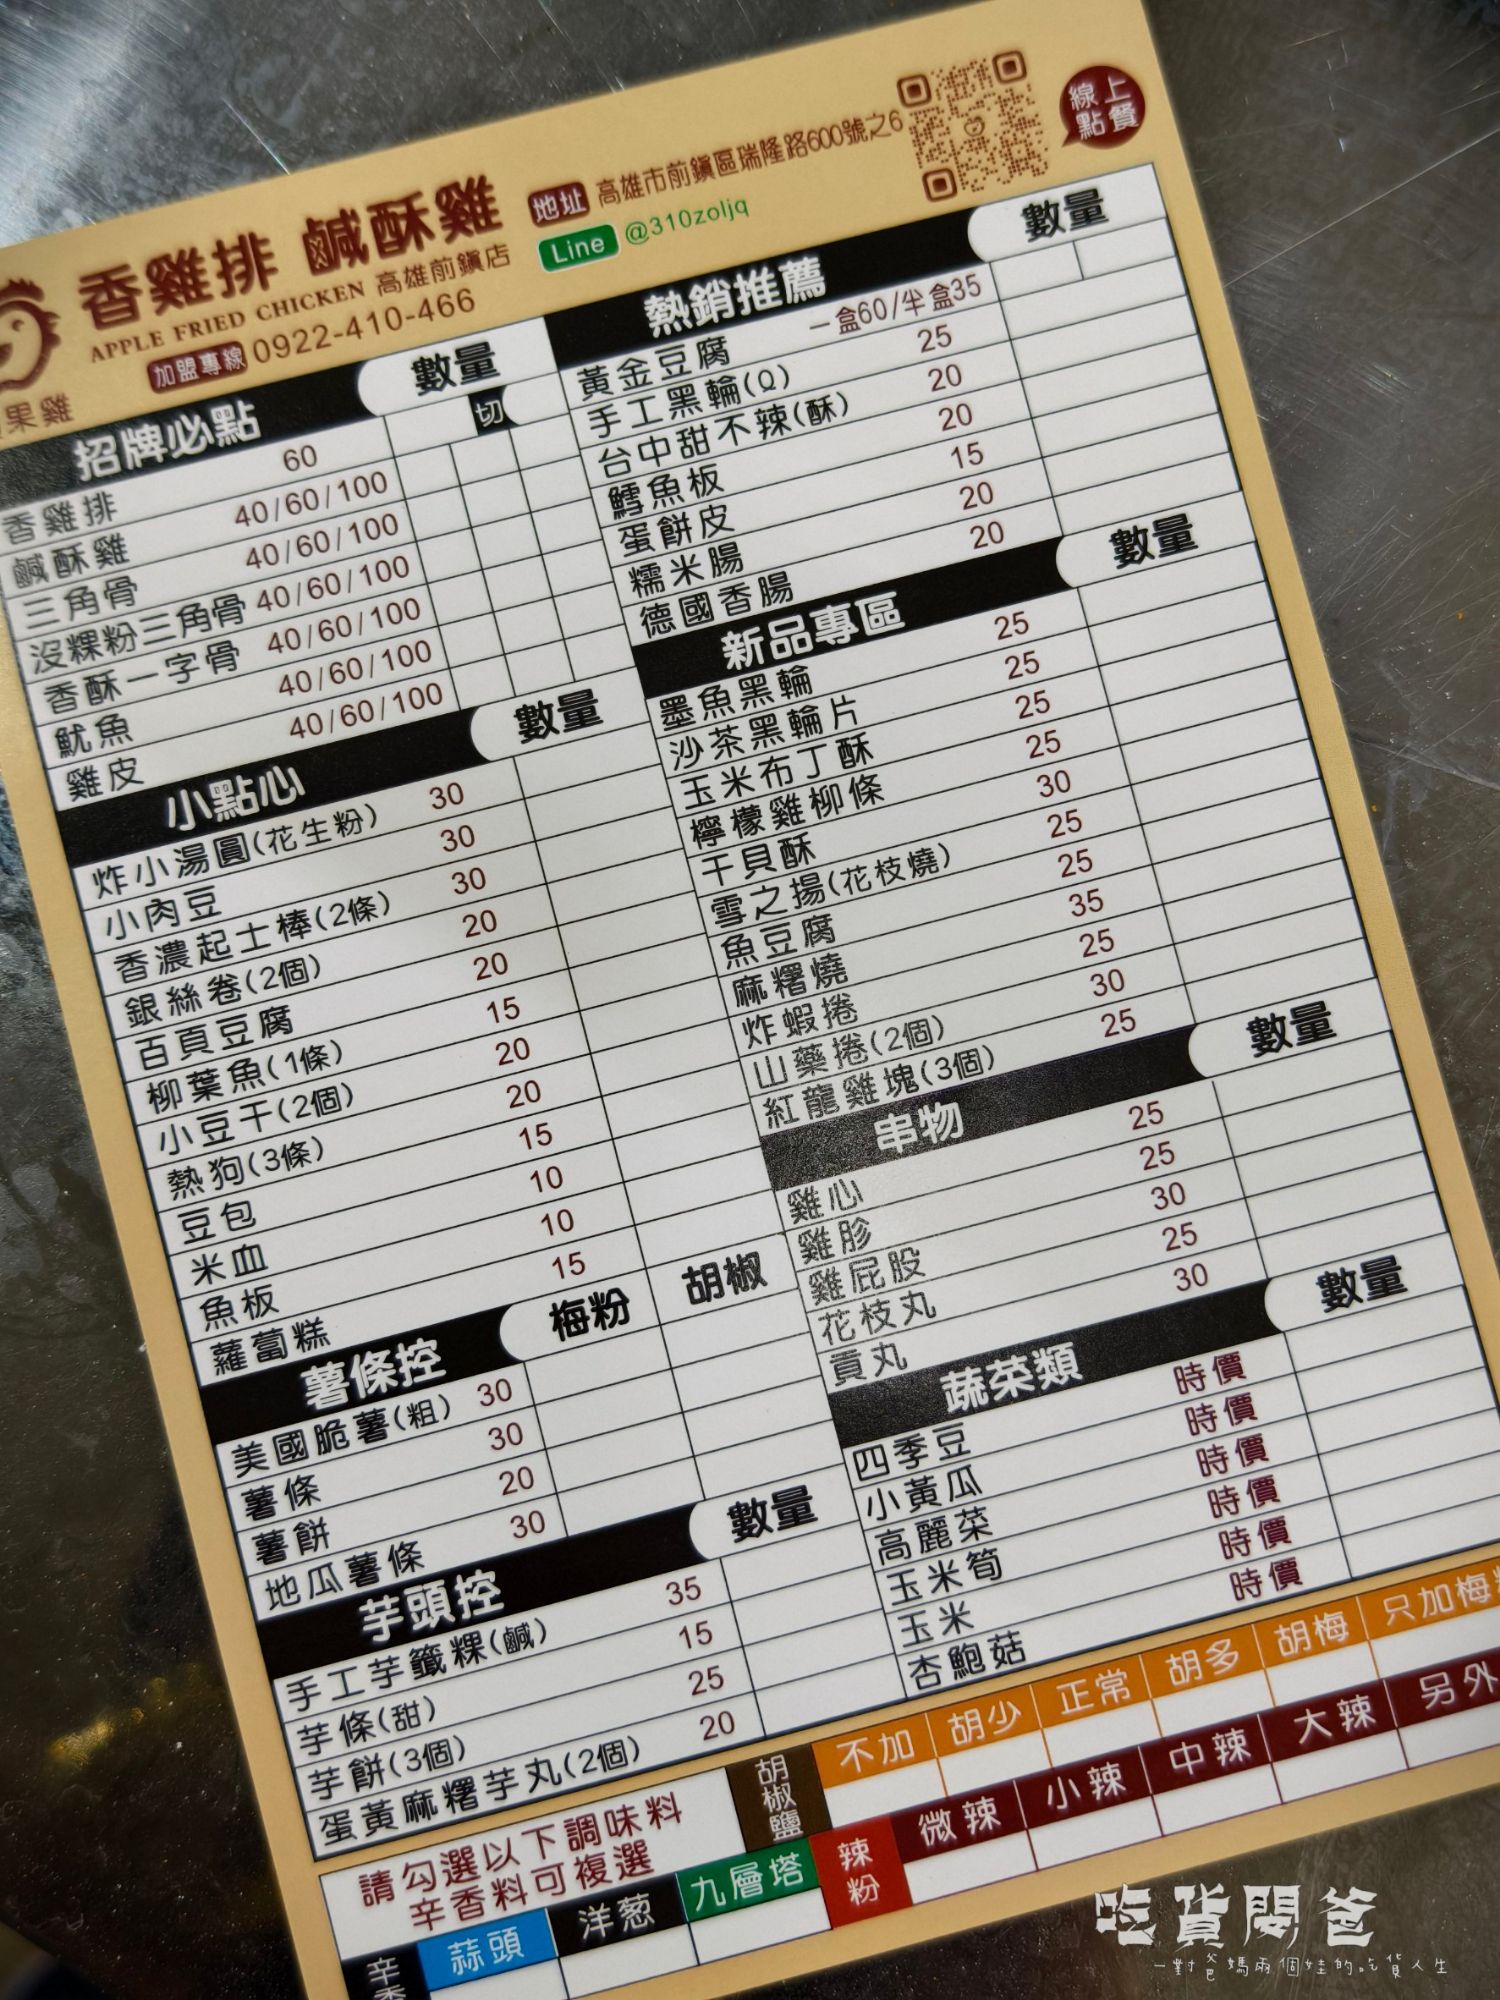 香雞排 鹹酥雞
APPLE FRIED CHICKEN 高雄前鎮店
加盟專線 0922-410-466
果雞
地址 高雄市前鎮區瑞隆路600號之6
Line @310zoljq
線上
點餐
招牌必點 數量
切
香雞排 60
鹹酥雞 40/60/100
三角骨 40/60/100
沒粿粉三角骨 40/60/100
香酥一字骨 40/60/100
魷魚 40/60/100
雞皮 40/60/100
小點心 數量
炸小湯圓(花生粉) 30
小肉豆 30
香濃起士棒(2條) 30
銀絲卷(2個) 20
百頁豆腐 20
柳葉魚(1條) 15
小豆干(2個) 20
熱狗(3條) 20
豆包 15
米血 10
魚板 10
蘿蔔糕 15
薯條控 梅粉 胡椒
美國脆薯(粗) 30
薯條 30
薯餅 20
地瓜薯條 30
芋頭控 數量
手工芋籤粿(鹹) 35
芋條(甜) 15
芋餅(3個) 25
蛋黃麻糬芋丸(2個) 20
熱銷推薦 數量
黃金豆腐 一盒60/半盒35
手工黑輪(Q) 25
台中甜不辣(酥) 20
鱈魚板 20
蛋餅皮 15
糯米腸 20
德國香腸 20
新品專區 數量
墨魚黑輪 25
沙茶黑輪片 25
玉米布丁酥 25
檸檬雞柳條 25
干貝酥 30
雪之揚(花枝燒) 25
魚豆腐 25
麻糬燒 35
炸蝦捲 25
山藥捲(2個) 30
紅龍雞塊(3個) 25
串物 數量
雞心 25
雞胗 25
雞屁股 30
花枝丸 25
貢丸 30
蔬菜類 數量
四季豆 時價
小黃瓜 時價
高麗菜 時價
玉米筍 時價
玉米 時價
杏鮑菇 時價
請勾選以下調味料
辛香料可複選
胡椒鹽 不加 胡少 正常 胡多 胡梅 只加梅
辣粉 微辣 小辣 中辣 大辣 另外
辛香 蒜頭 洋葱 九層塔
吃貨閔爸
一對爸媽兩個娃的吃貨人生